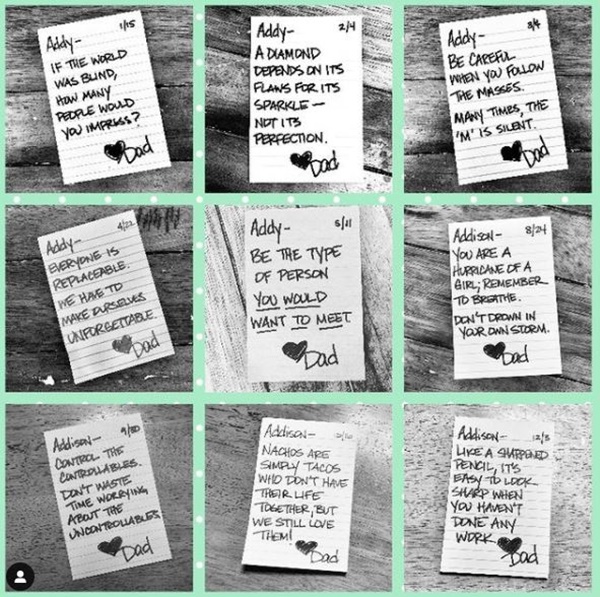 Addy- 1/15
IF THE WORLD
WAS BLIND,
HOW MANY
PEOPLE WOULD
YOU IMPRESS?
Dad
Addy- 2/4
A DIAMOND
DEPENDS ON ITS
FLAWS FOR ITS
SPARKLE —
NOT ITS
PERFECTION.
Dad
Addy-
BE CAREFUL
WHEN YOU FOLLOW
THE MASSES.
MANY TIMES, THE
'M' IS SILENT.
Dad
Addy- 4/22
EVERYONE IS
REPLACEABLE.
WE HAVE TO
MAKE OURSELVES
UNFORGETTABLE.
Dad
Addy- 5/11
BE THE TYPE
OF PERSON
YOU WOULD
WANT TO MEET
Dad
Addison- 8/24
YOU ARE A
HURRICANE OF A
GIRL; REMEMBER
TO BREATHE.
DON'T DROWN IN
YOUR OWN STORM.
Dad
Addison- 9/30
CONTROL THE
CONTROLLABLES.
DON'T WASTE
TIME WORRYING
ABOUT THE
UNCONTROLLABLES
Dad
Addison-
NACHOS ARE
SIMPLY TACOS
WHO DON'T HAVE
THEIR LIFE
TOGETHER, BUT
WE STILL LOVE
THEM!
Dad
Addison-
LIKE A SHARPENED
PENCIL, IT'S
EASY TO LOOK
SHARP WHEN
YOU HAVEN'T
DONE ANY
WORK
Dad